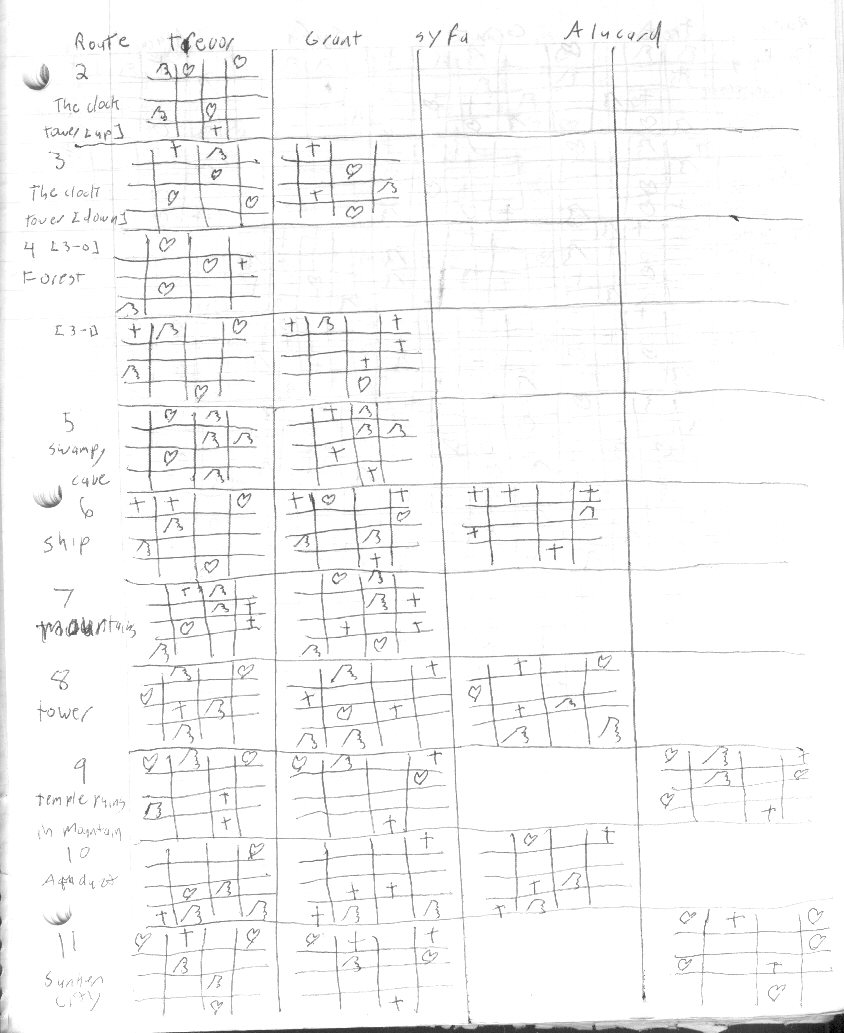 Route Trevor Grant syfa Alucard
2
The clock
tower [up]
3
The clock
tower [down]
4 [3-0]
Forest
[3-1]
5
swampy
cave
6
ship
7
mountains
8
tower
9
temple ruins
in mountain
10
11
Sunken
city